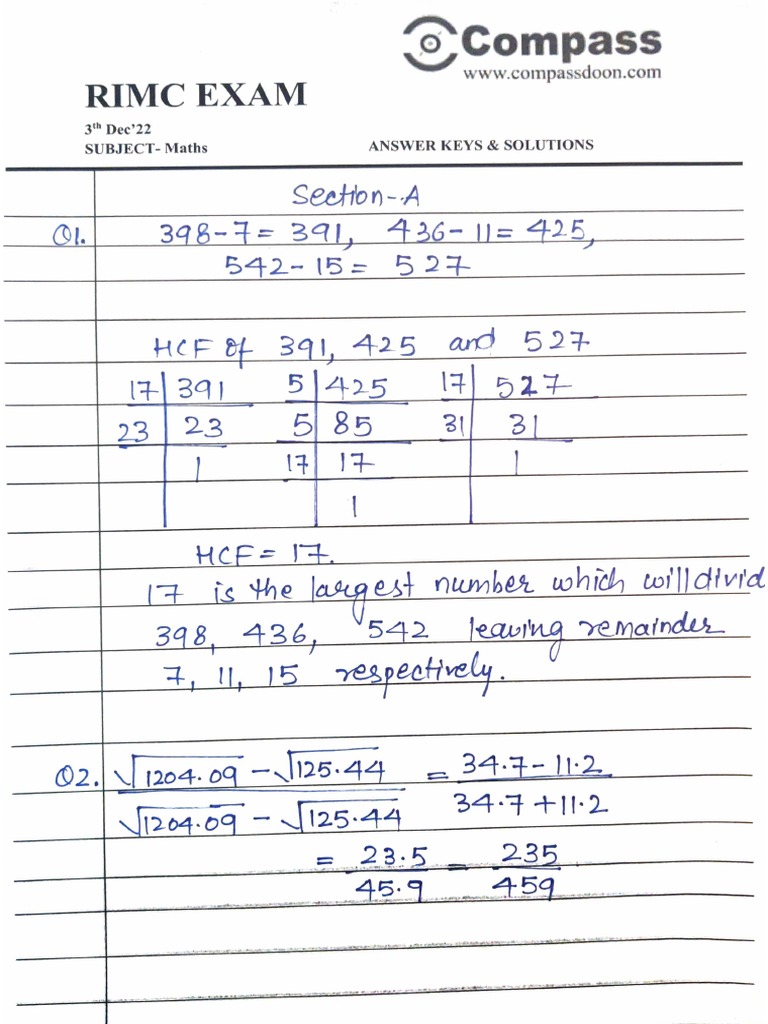 Compass
www.compassdoon.com
RIMC EXAM
3th Dec'22
SUBJECT- Maths
ANSWER KEYS & SOLUTIONS
Section-A
Q1. 398-7 = 391, 436-11 = 425,
542-15 = 527
HCF of 391, 425 and 527
17 391 5 425 17 527
23 23 5 85 31 31
1 17 17 1
1
HCF = 17.
17 is the largest number which will divid
398, 436, 542 leaving remainder
7, 11, 15 respectively.
Q2. √1204.09 - √125.44 = 34.7-11.2
√1204.09 - √125.44 34.7+11.2
= 23.5 = 235
45.9 459